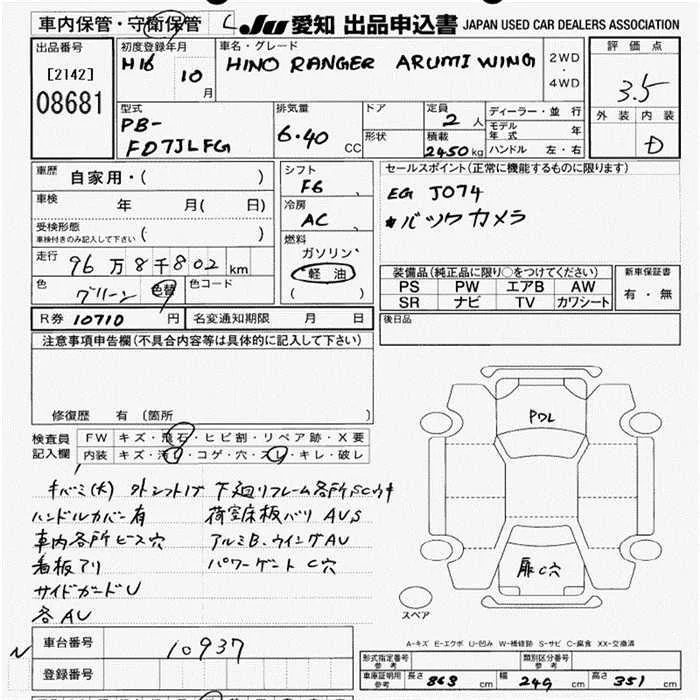 車内保管・守衛保管
JU 愛知 出品申込書 JAPAN USED CAR DEALERS ASSOCIATION
出品番号
[2142]
08681
初度登録年月
H16 10月
車名・グレード
HINO RANGER ARUMI WING
2WD
・
4WD
評価点
3.5
外装 内装
D
型式
PB-
FD7JLFG
排気量
6.40 CC
ドア
形状
定員
2 人
積載
2450 kg
ディーラー・並行
モデル年式 年
ハンドル 左・右
車歴 自家用・( )
車検 年 月( 日)
受検形態
車検付きのみ記入して下さい ( )
走行 96万8千802 km
色 グリーン 色替 色コード
シフト
F6
冷房
AC
燃料
ガソリン・
軽油
( )
セールスポイント(正常に機能するものに限ります)
EG J07A
*バックカメラ
装備品(純正品に限り○をつけてください)
PS PW エアB AW
SR ナビ TV カワシート
新車保証書
有・無
R券 10710 円 名変通知期限 月 日
後日品
注意事項申告欄(不具合内容等は具体的に記入して下さい)
修復歴 有(箇所 )
検査員
記入欄
FW キズ・飛石・ヒビ割・リペア跡・X要
内装 キズ・汚レ・コゲ・穴・スレ・キレ・破レ
キバミ(大) 下廻リフレーム各所SCサキ
ハンドルカバー有 荷室床板バリ AUS
車内各所ビス穴 アルミB、ウイングAU
看板アリ パワーゲート C穴
サイドガードU
各AU
PDL
扉C穴
スペア
A-キズ E-エクボ U-凹み W-補修跡 S-サビ C-腐食 XX-交換済
N
車台番号 10937
登録番号
形式指定番号 参考 類別区分番号 参考
車庫証明用 参考 長さ 863 cm 幅 249 cm 高さ 351 cm